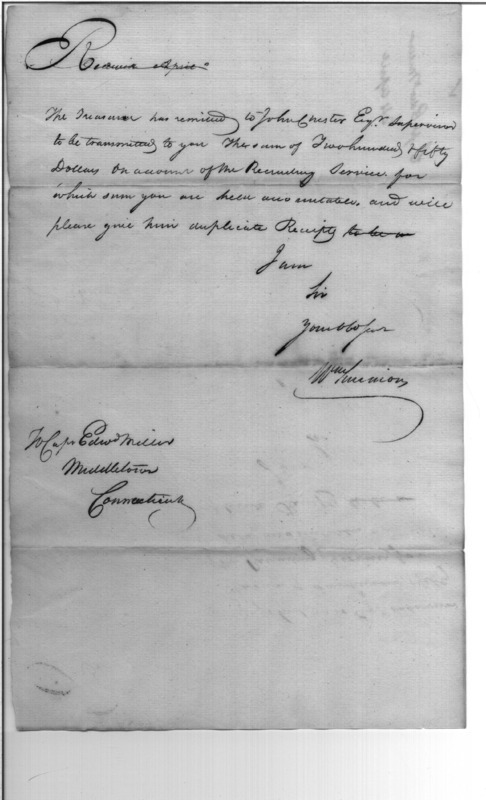 The Treasurer has remitted to John Chester Esqr. Supervisor
to be transmitted to you The sum of Two hundred & fifty
Dollars on account of the Recruiting Service for
which sum you are held accountable and will
please give him duplicate Receipts to be
I am
Sir
Your Ob Ser
Wm Simmons
To Capt Edwd Miller
Middletown
Connecticut